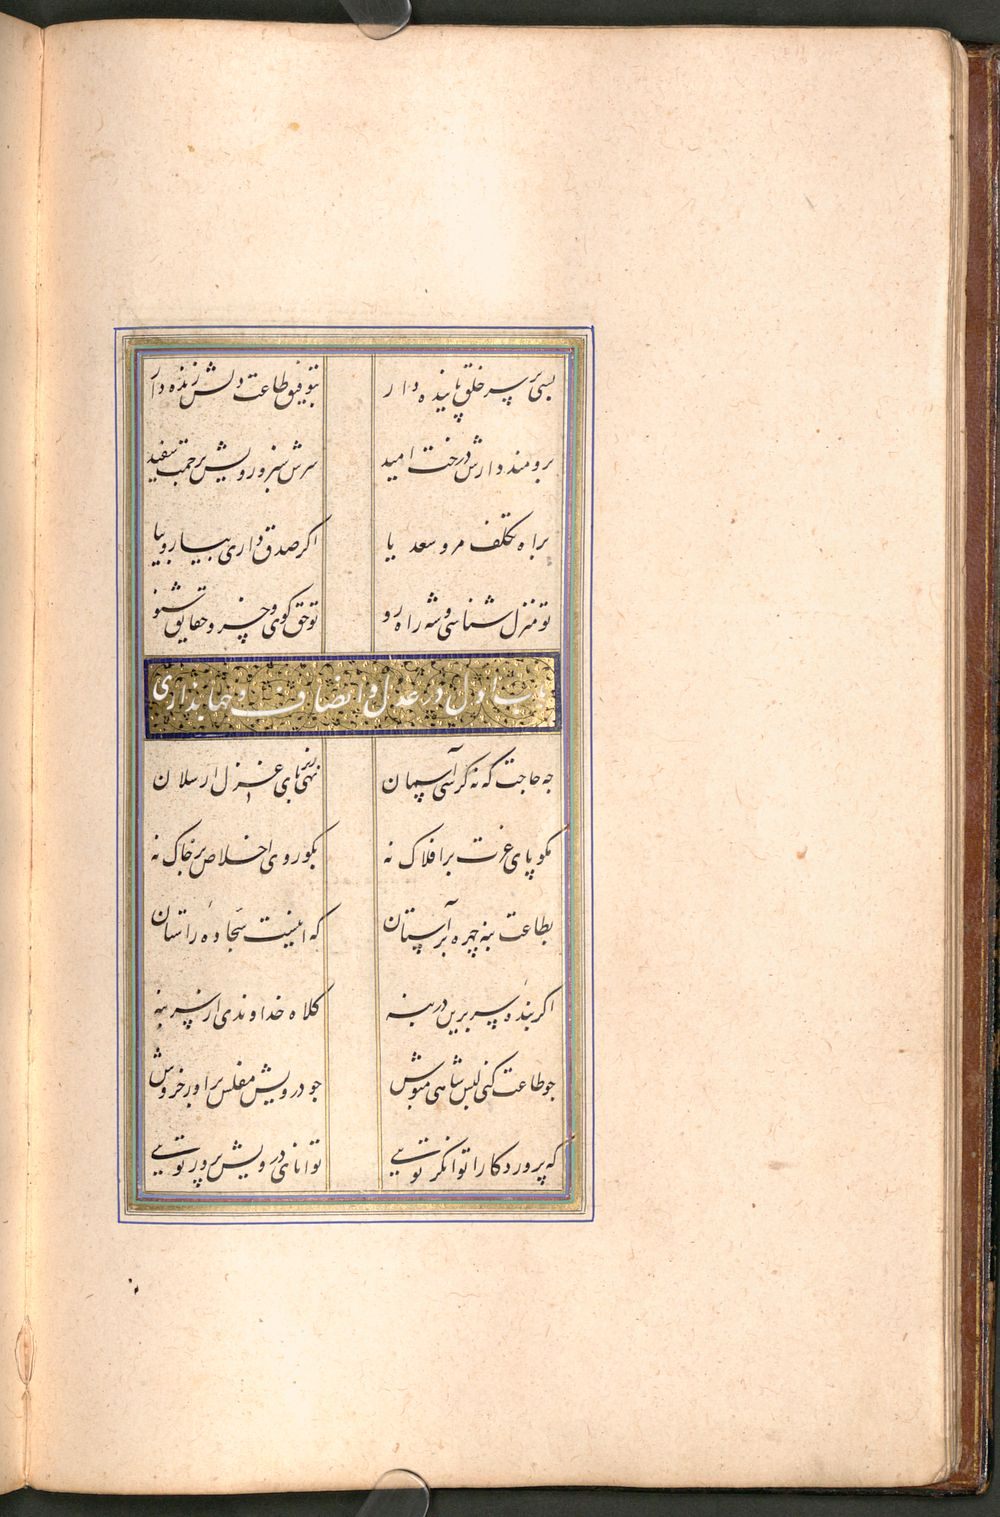 بسی بر سر خلق پاینده دار بتوفیق طاعت دلش زنده دار
برومند دارش درخت امید سرش سبز و رویش برحمت سفید
براه تکلف مرو سعدیا اکر صدق داری بیار و بیا
تو منزل شناسی و شه راه رو تو حق کوی و خسرو حقایق شنو
باب اول در عدل و انصاف و جهانداری
جه حاجت که نه کرسی آسمان نهی زیر پای قزل ارسلان
مکو پای عزت بر افلاک نه بکو روی اخلاص بر خاک نه
بطاعت بنه چهره بر آستان که اینست سجاده راستان
اکر بنده سر برین در بنه کلاه خداوندی از سر بنه
جو طاعت کنی لبس شاهی مپوش جو درویش مفلس براور خروش
که پروردکارا توانکر تویی توانای درویش پرور تویی